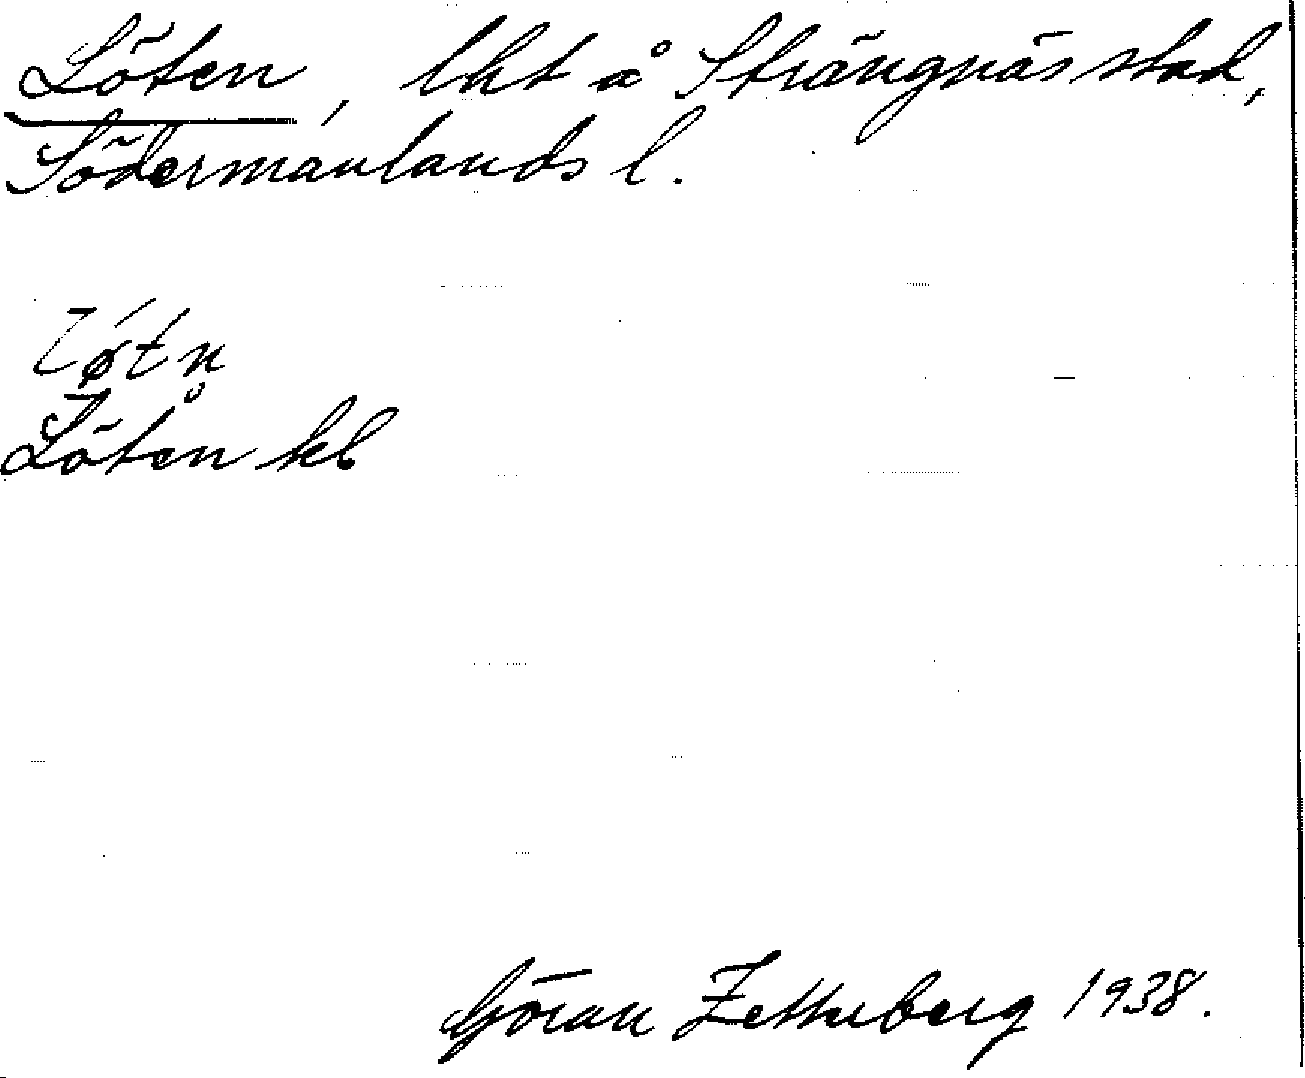 Löten, lht å Strängnäs stad,
Södermanlands l.
Löten kb
Göran Zetterberg 1938.